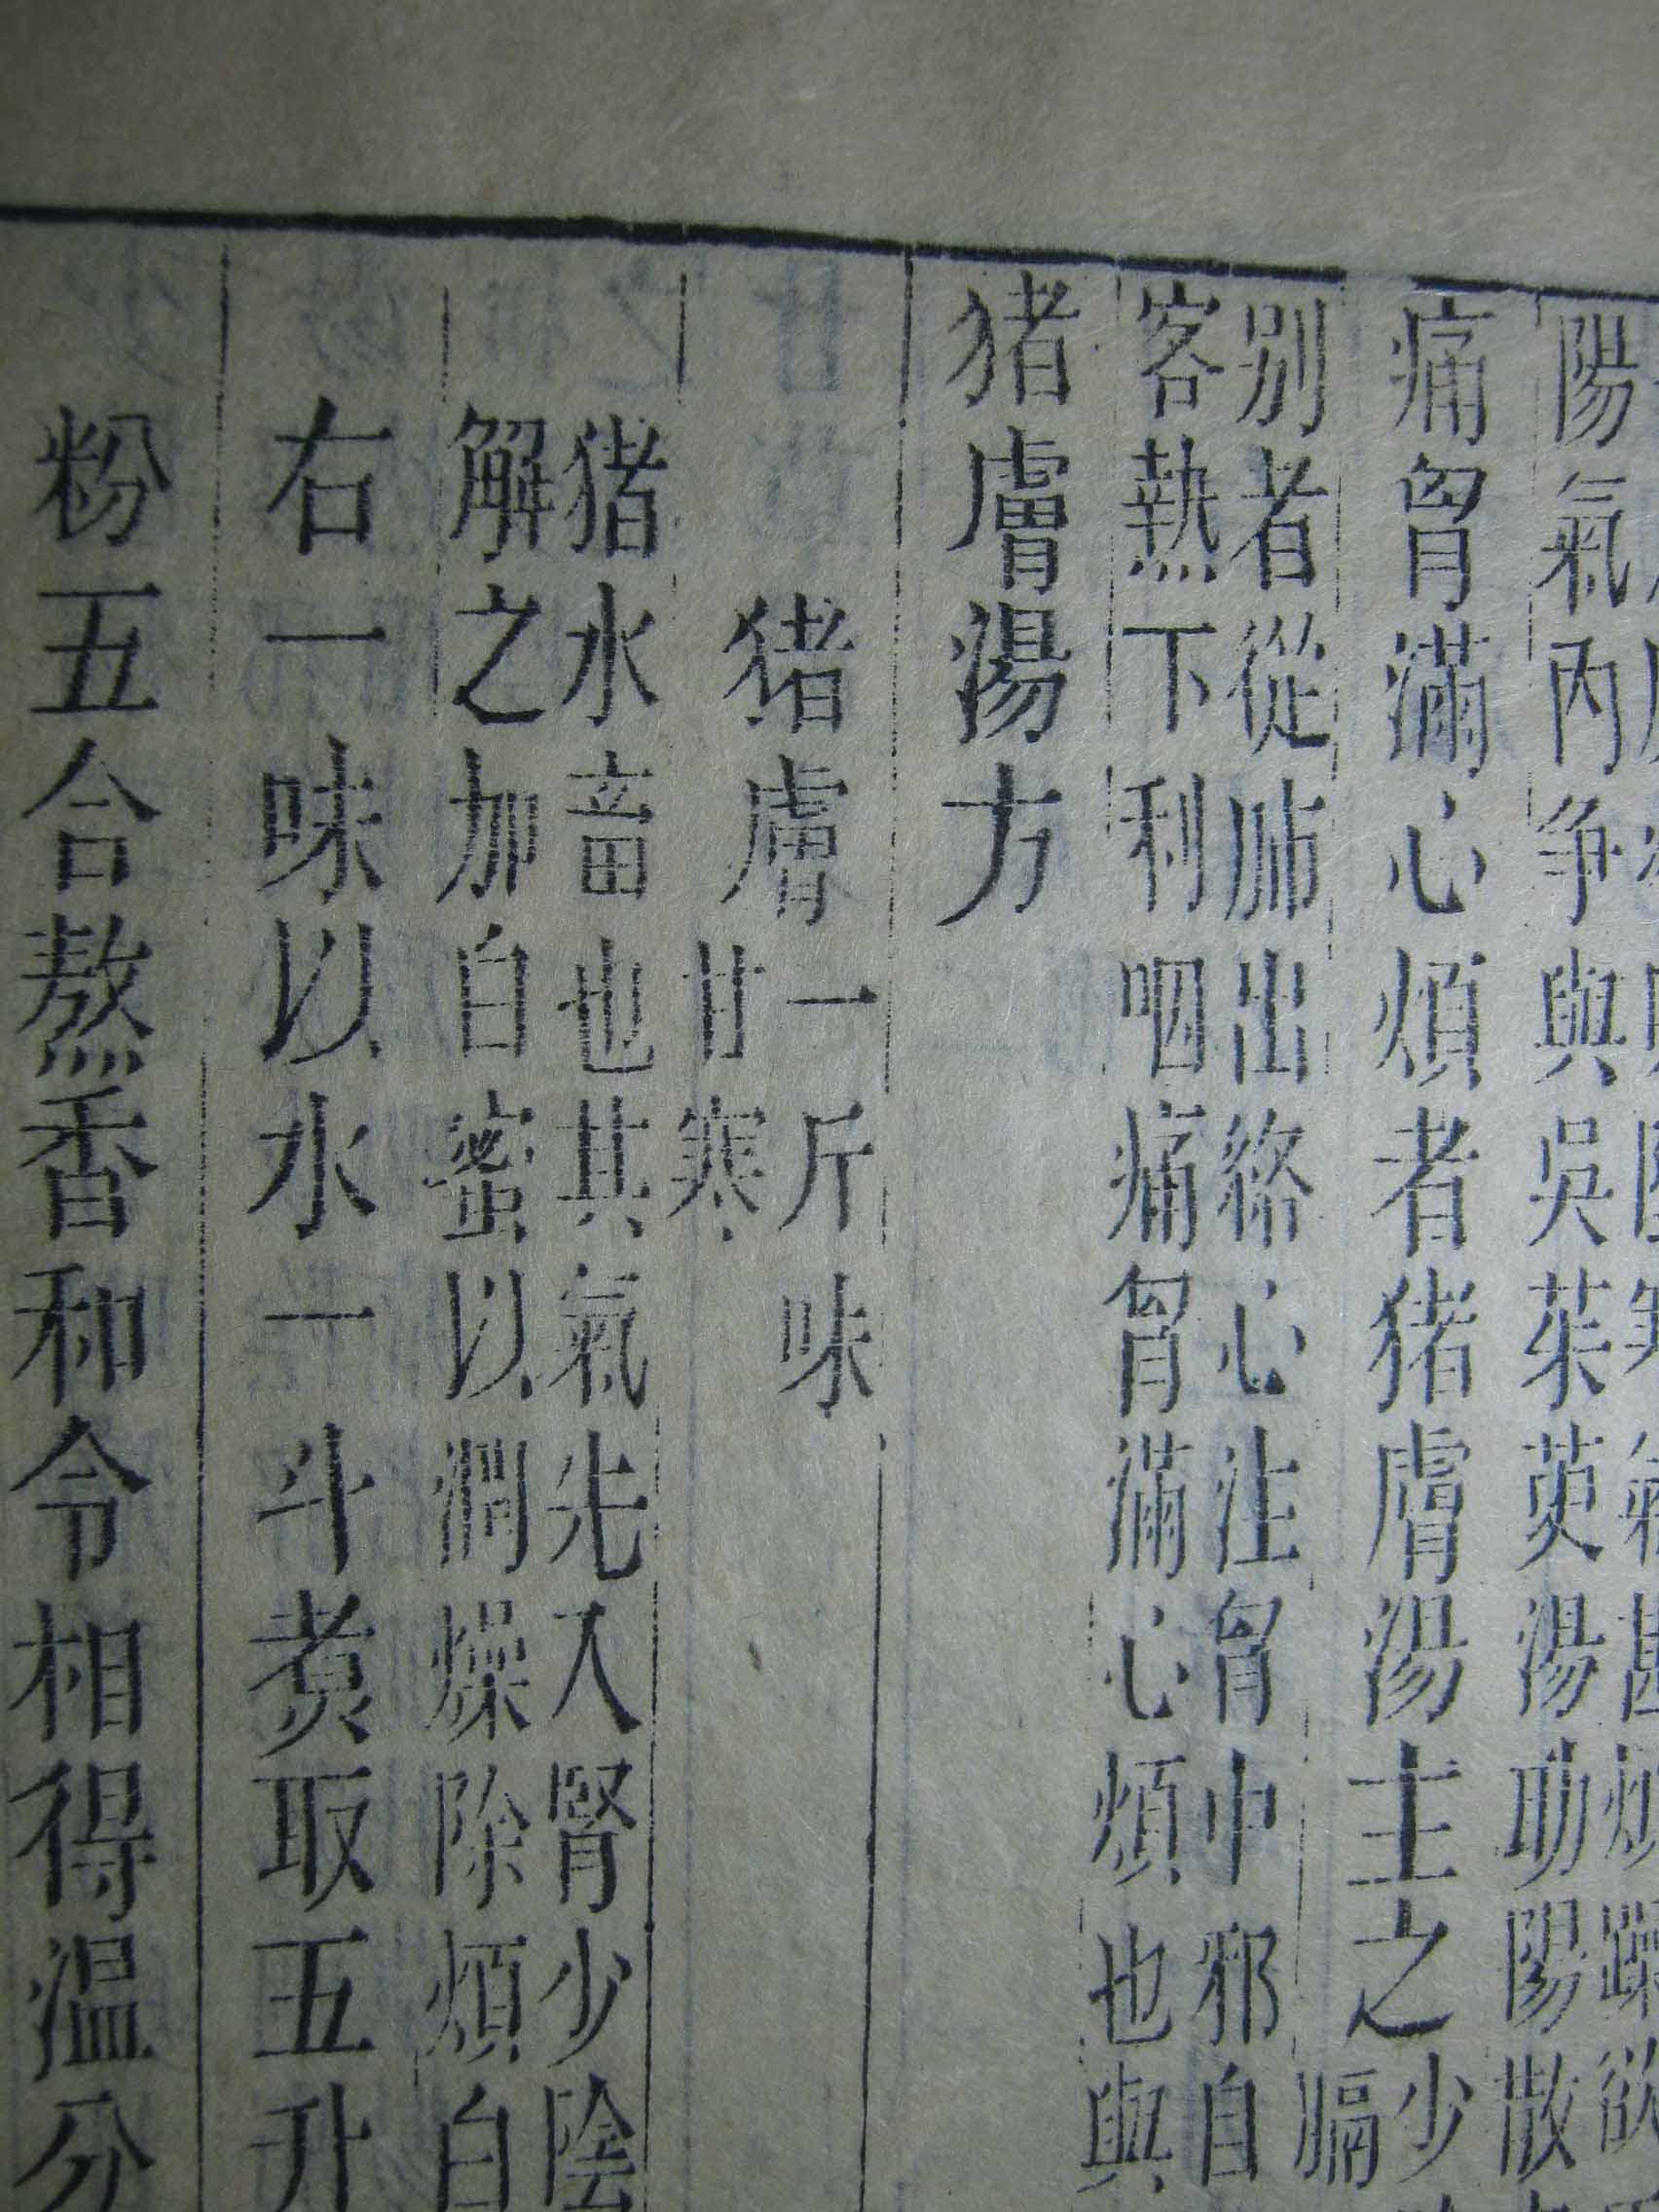 陽氣內爭與吳茱萸湯助陽散
痛胷滿心煩者猪膚湯主之
少
膈
別者從肺出絡心注胷中邪自
客熱下利咽痛胷滿心煩也與
猪膚湯方
猪膚
一斤味
甘寒
猪水畜也其氣先入腎少陰
解之加白蜜以潤燥除煩白
右一味以水一斗煑取五升
粉五合熬香和令相得温分